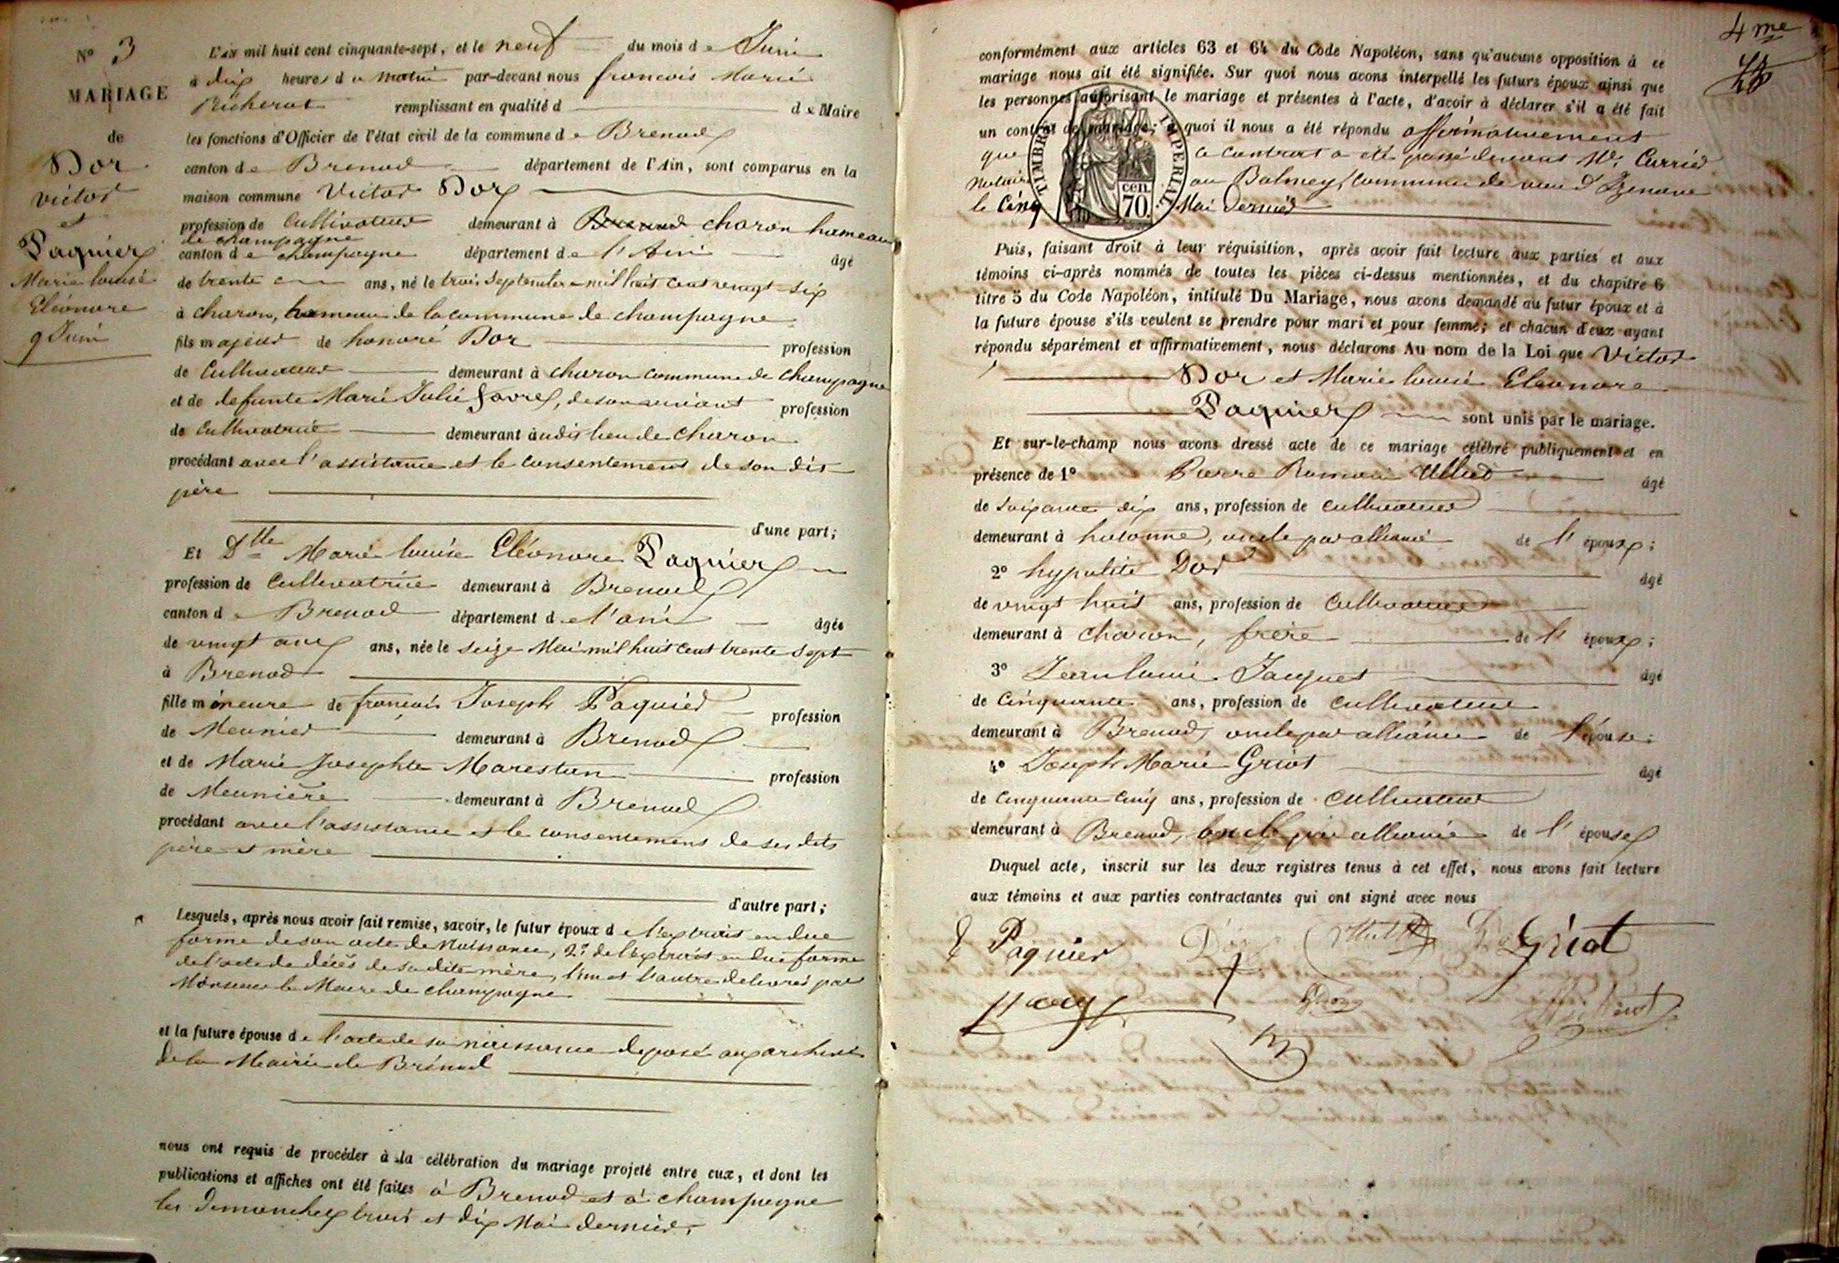 N° 3
MARIAGE
de
Dor
victor
et
Paquier
Marie louise
Eléonore
9 Juin
L'an mil huit cent cinquante-sept, et le neuf du mois de Juin
à dix heures du matin par-devant nous françois Marie
Richerot remplissant en qualité d de Maire
les fonctions d'Officier de l'état civil de la commune de Brenod
canton de Brenod département de l'Ain, sont comparus en la
maison commune Victor Dor
profession de Cultivateur demeurant à Brenod charon hameau
de champagne
canton de champagne département de l'Ain âgé
de trente ans, né le trois Septembre mil huit cent vingt-six
à charon, hameau de la commune de champagne
fils majeur de honoré Dor profession
de Cultivateur demeurant à charon commune de champagne
et de defunte Marie Julie favre, de son vivant profession
de Cultivatrice demeurant audit lieu de Charon
procédant avec l'assistance et le consentement de son dit
père
d'une part;
Et Dlle Marie louise Eléonore Paquier
profession de Cultivatrice demeurant à Brenod
canton de Brenod département de l'ain âgée
de vingt ans ans, née le seize Mai mil huit cent trente sept
à Brenod
fille mineure de françois Joseph Paquier profession
de Meunier demeurant à Brenod
et de Marie Josephte Marestan profession
de Meunière demeurant à Brenod
procédant avec l'assistance et le consentement de ses dits
père et mère
d'autre part;
Lesquels, après nous avoir fait remise, savoir, le futur époux de l'extrait en due
forme de son acte de Naissance, 2° de l'extrait en due forme
de l'acte de décès de sa dite mère, l'un et l'autre delivrés par
Monsieur le Maire de champagne
et la future épouse de l'acte de sa naissance déposé aux archives
de la Mairie de Brénod
nous ont requis de procéder à la célébration du mariage projeté entre eux, et dont les
publications et affiches ont été faites à Brenod et à champagne
les dimanches trois et dix Mai dernier.
4me
conformément aux articles 63 et 64 du Code Napoléon, sans qu'aucune opposition à ce
mariage nous ait été signifiée. Sur quoi nous avons interpellé les futurs époux ainsi que
les personnes autorisant le mariage et présentes à l'acte, d'avoir à déclarer s'il a été fait
un contrat de mariage; à quoi il nous a été répondu affirmativement
que ce contrat a été passé devant Me Carrier
Notaire au Balmey, commune de vieu d'Izenave
le Cinq Mai dernier
TIMBRE IMPERIAL
70 cen.
Puis, faisant droit à leur réquisition, après avoir fait lecture aux parties et aux
témoins ci-après nommés de toutes les pièces ci-dessus mentionnées, et du chapitre 6
titre 5 du Code Napoléon, intitulé Du Mariage, nous avons demandé au futur époux et à
la future épouse s'ils veulent se prendre pour mari et pour femme; et chacun d'eux ayant
répondu séparément et affirmativement, nous déclarons Au nom de la Loi que Victor
Dor et Marie louise Eléonore
Paquier sont unis par le mariage.
Et sur-le-champ nous avons dressé acte de ce mariage célébré publiquement et en
présence de 1° Pierre Romain Ulliet âgé
de soixante dix ans, profession de cultivateur
demeurant à hotonne, oncle par alliance de l'époux;
2° hypolite Dor âgé
de vingt huit ans, profession de Cultivateur
demeurant à charon, frère de l' époux;
3° Jean louis Jacquet âgé
de Cinquante ans, profession de cultivateur
demeurant à Brenod, oncle par alliance de l'épouse;
4° Joseph Marie Griot âgé
de Cinquante Cinq ans, profession de cultivateur
demeurant à Brenod, oncle par alliance de l' épouse
Duquel acte, inscrit sur les deux registres tenus à cet effet, nous avons fait lecture
aux témoins et aux parties contractantes qui ont signé avec nous
Paquier Dor Griot